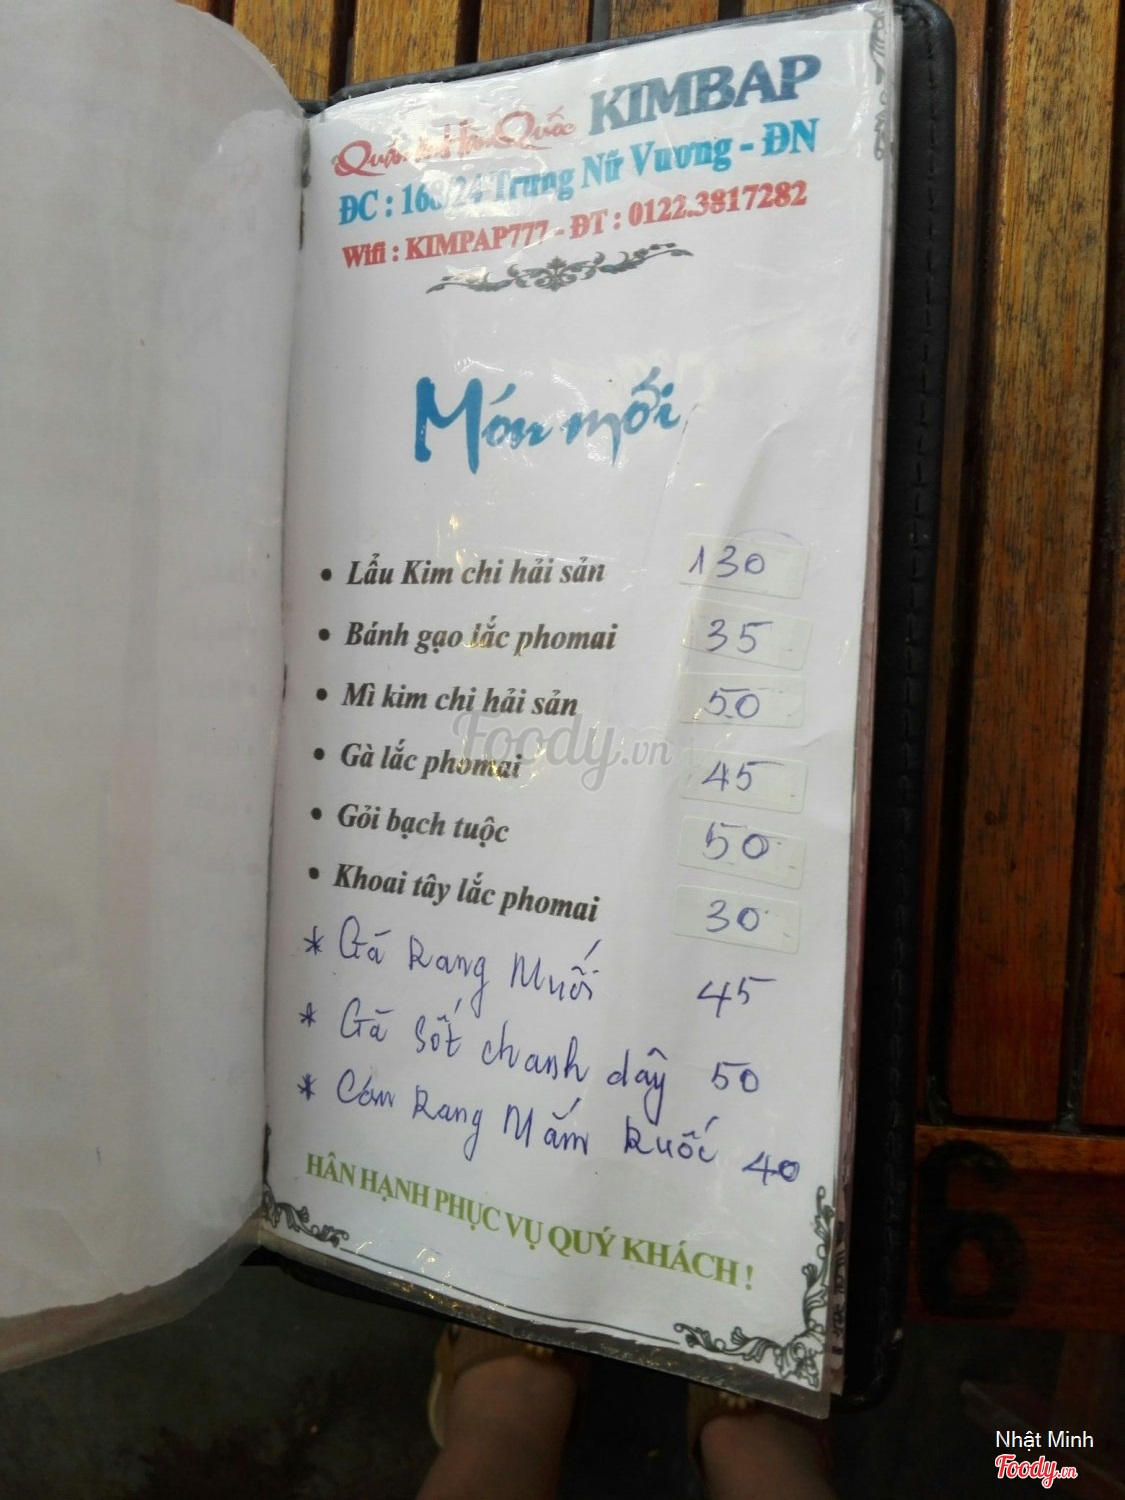 Quán ăn Hàn Quốc KIMBAP
ĐC : 168/24 Trưng Nữ Vương - ĐN
Wifi : KIMPAP777 - ĐT : 0122.3817282
Món mới
• Lẩu Kim chi hải sản 130
• Bánh gạo lắc phomai 35
• Mì kim chi hải sản 50
• Gà lắc phomai 45
• Gỏi bạch tuộc 50
• Khoai tây lắc phomai 30
* Gà Rang Muối 45
* Gà Sốt chanh dây 50
* Cơm Rang Mắm Ruốc 40
HÂN HẠNH PHỤC VỤ QUÝ KHÁCH !
Foody.vn
6
Nhật Minh
Foody.vn